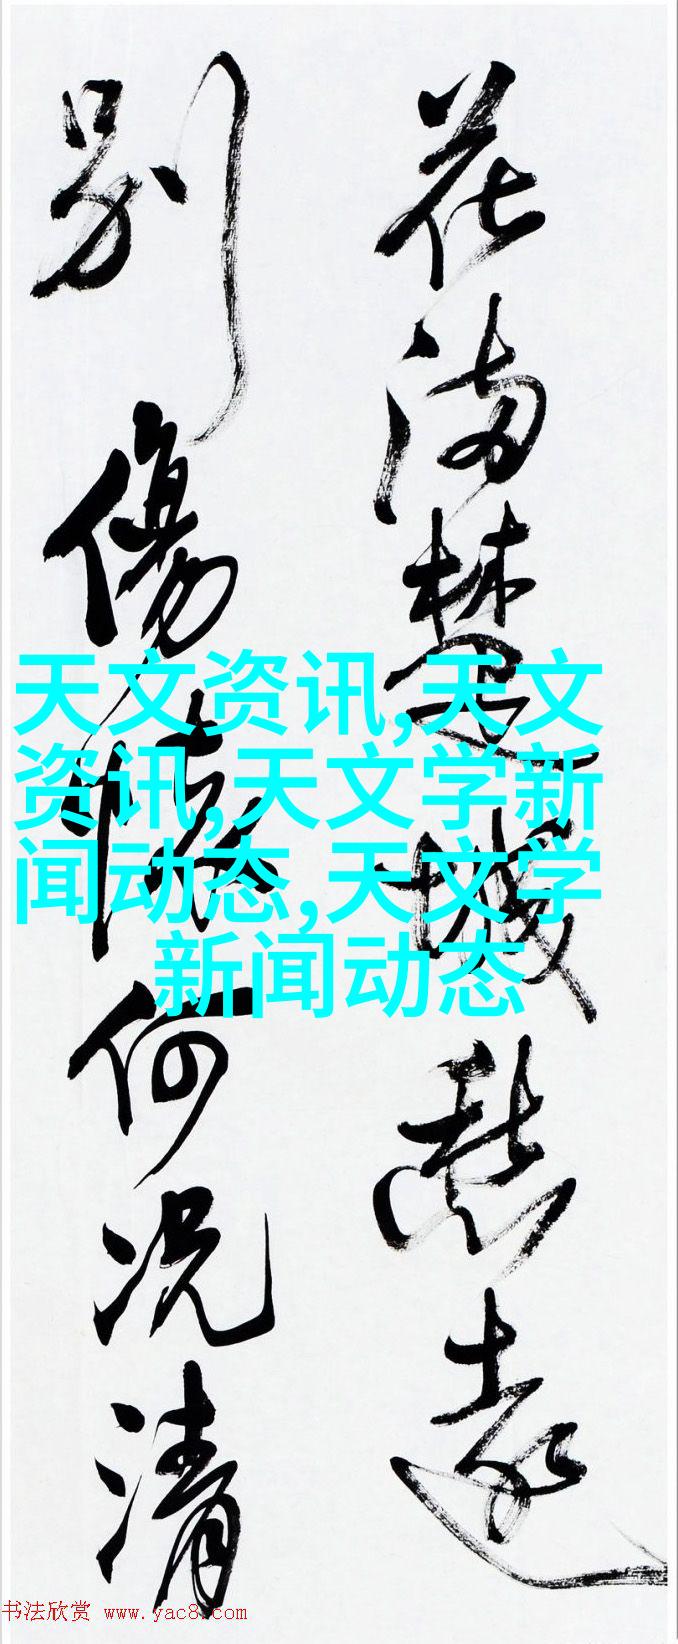 花滿楚城愁遠
別傷懷何況清
天文资讯,天文
资讯,天文学新
闻动态,天文学
新闻动态
书法欣赏 www.yac8.com